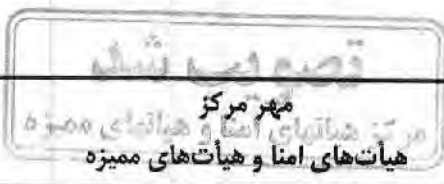 تصویب شد
مهر مرکز
مرکز هیأتهای امنا و هیأتهای ممیزه
هیأت‌های امنا و هیأت‌های ممیزه